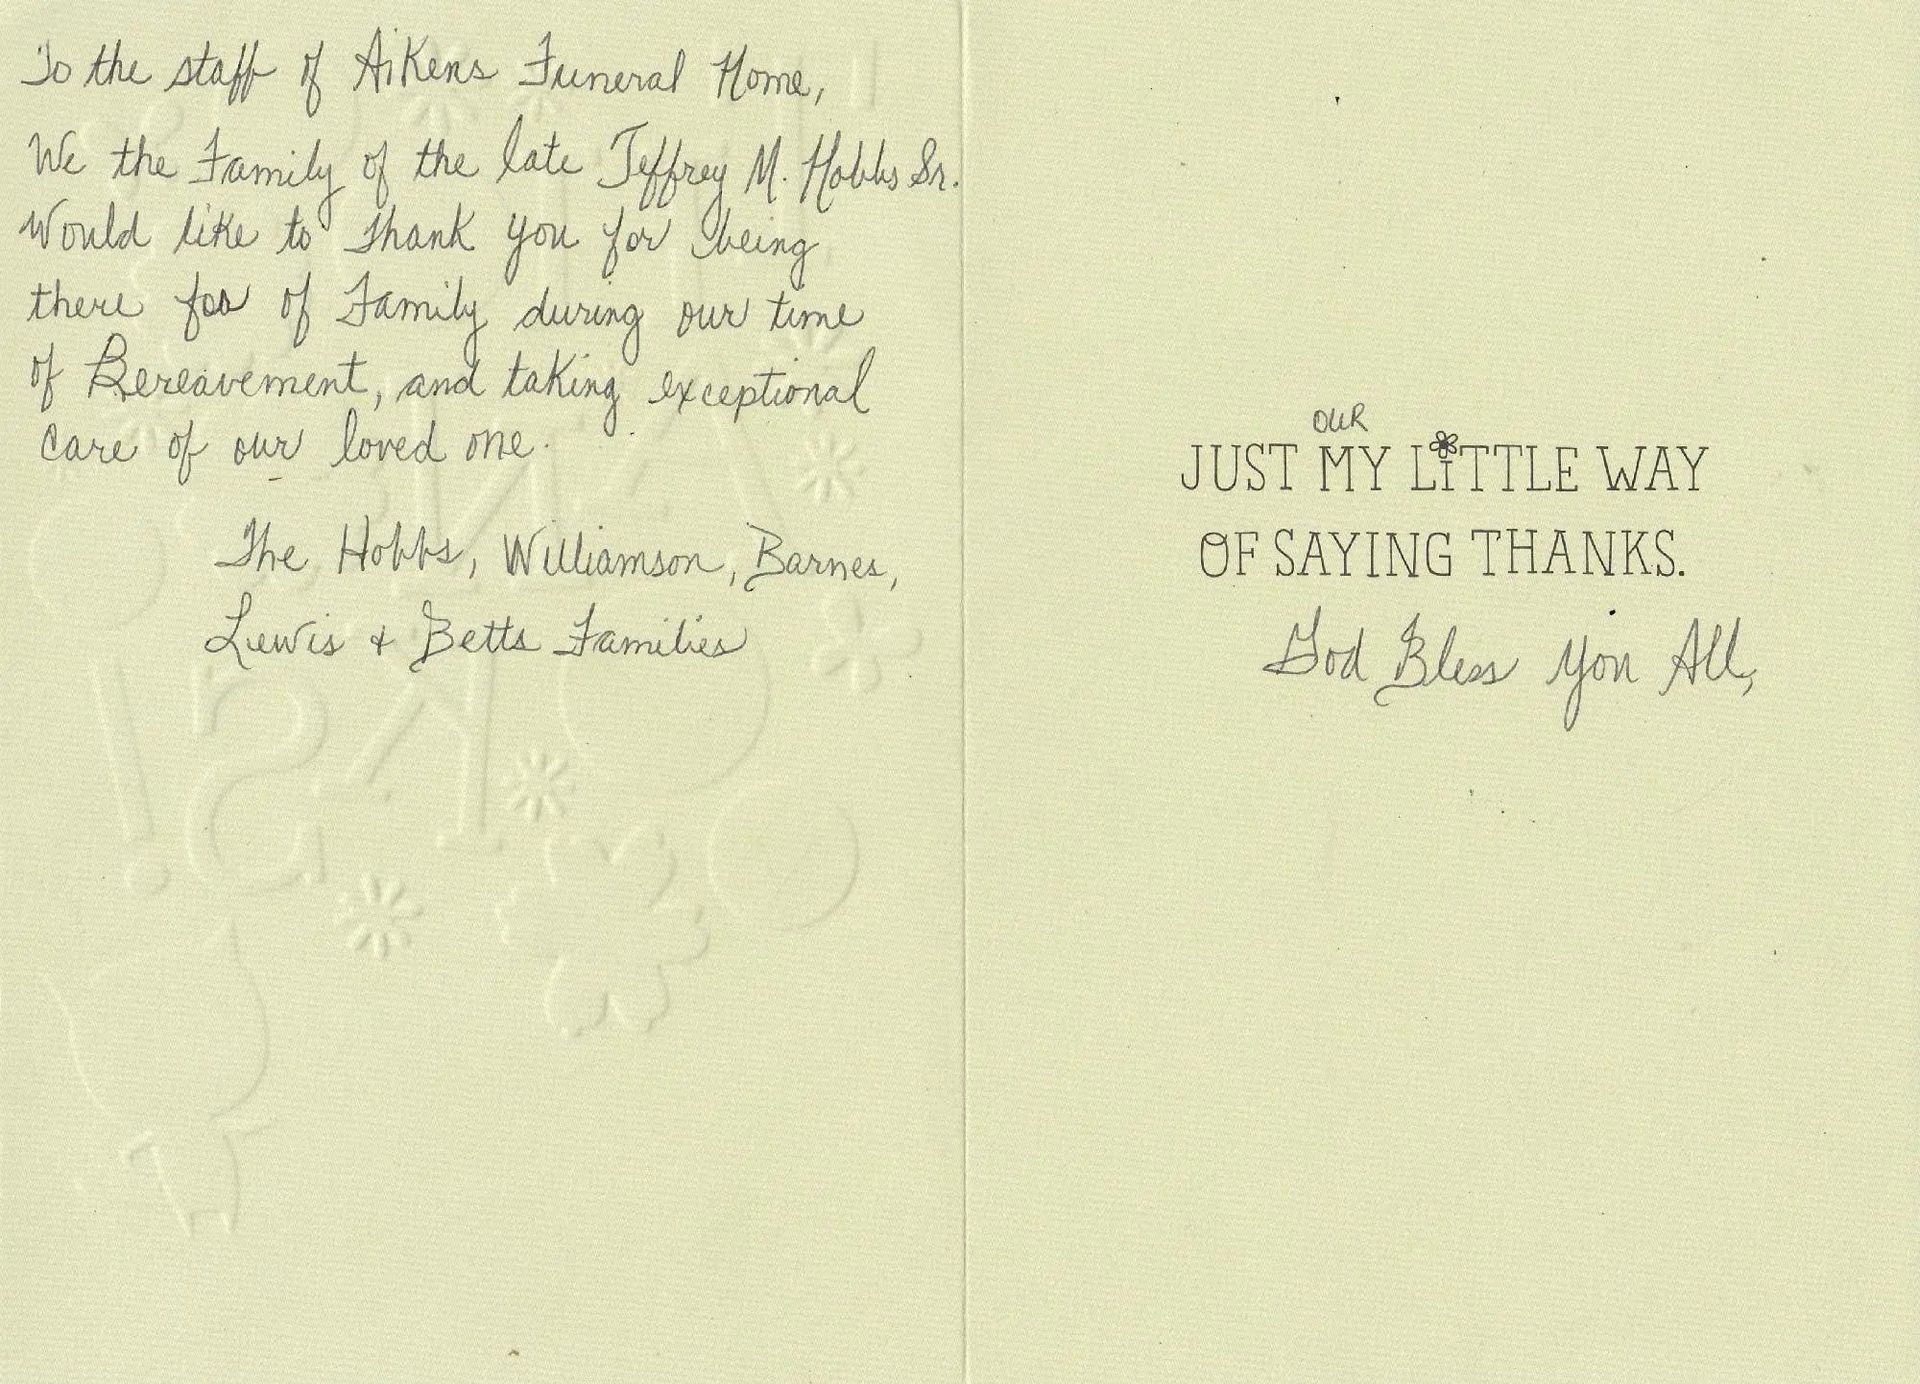 To the staff of Aikens Funeral Home,
We the Family of the late Jeffrey M. Hobbs Sr.
Would like to Thank you for being
there for of Family during our time
of Bereavement, and taking exceptional
care of our loved one.
The Hobbs, Williamson, Barnes,
Lewis + Betts Families
OUR
JUST MY LiTTLE WAY
OF SAYING THANKS.
God Bless You All,